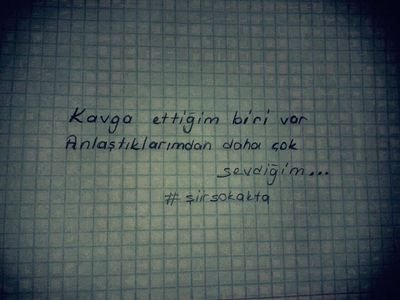 Kavga ettiğim biri var
Anlaştıklarımdan daha çok
sevdiğim...
#şiirsokakta